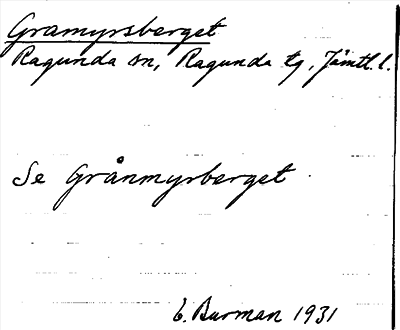 Gramyrsberget
Ragunda sn, Ragunda tg, Jämtl. l.
Se Grånmyrberget
E. Burman 1931